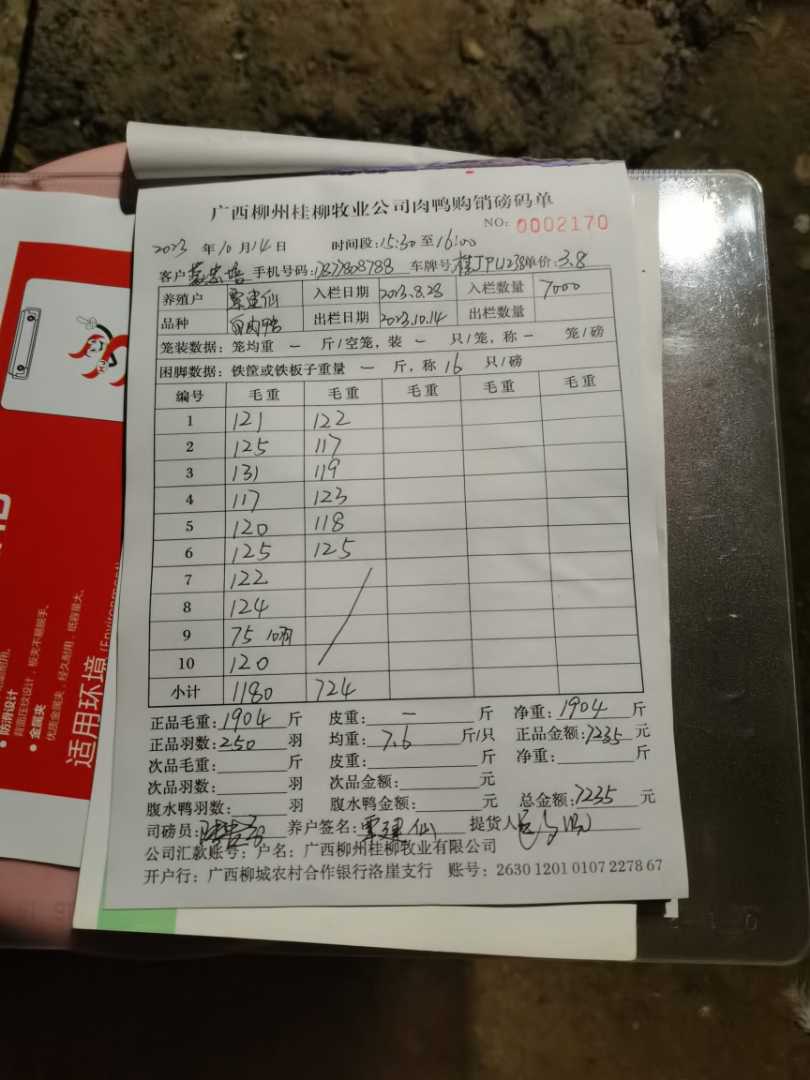 广西柳州桂柳牧业公司肉鸭购销磅码单
NO: 0002170
2023 年 10 月 14 日 时间段: 15:30 至 16:00
客户 手机号码: 车牌号 单价: 3.8
养殖户 覃建仙 入栏日期 2023.8.28 入栏数量 7000
品种 出栏日期 2023.10.14 出栏数量
笼装数据: 笼均重 - 斤/空笼, 装 - 只/笼, 称 - 笼/磅
困脚数据: 铁筐或铁板子重量 - 斤, 称 16 只/磅
编号 毛重 毛重 毛重 毛重 毛重
1 121 122
2 125 117
3 131 119
4 117 123
5 120 118
6 125 125
7 122
8 124
9 75 10羽
10 120
小计 1180 724
正品毛重: 1904 斤 皮重: - 斤 净重: 1904 斤
正品羽数: 250 羽 均重: 7.6 斤/只 正品金额: 7235 元
次品毛重: 斤 皮重: 斤 净重: 斤
次品羽数: 羽 次品金额: 元
腹水鸭羽数: 羽 腹水鸭金额: 元 总金额: 7235 元
司磅员: 养户签名: 覃建仙 提货人
公司汇款账号: 户名: 广西柳州桂柳牧业有限公司
开户行: 广西柳城农村合作银行洛崖支行 账号: 2630 1201 0107 2278 67
防滑设计
金属夹
适用环境